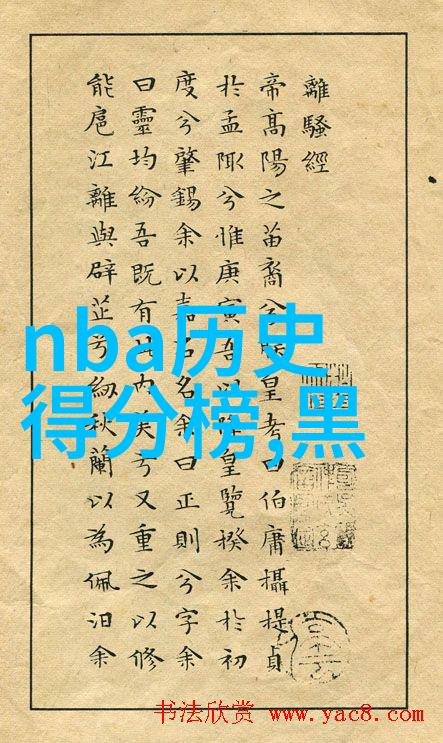 離騷經
帝高陽之苗裔兮朕皇考曰伯庸攝提貞
於孟陬兮惟庚寅吾以降皇覽揆余於初
度兮肇錫余以嘉名名余曰正則兮字余
曰靈均紛吾既有此內美兮又重之以修
能扈江離與辟芷兮紉秋蘭以為佩汩余
nba历史
得分榜,黑
书法欣赏 www.yac8.com